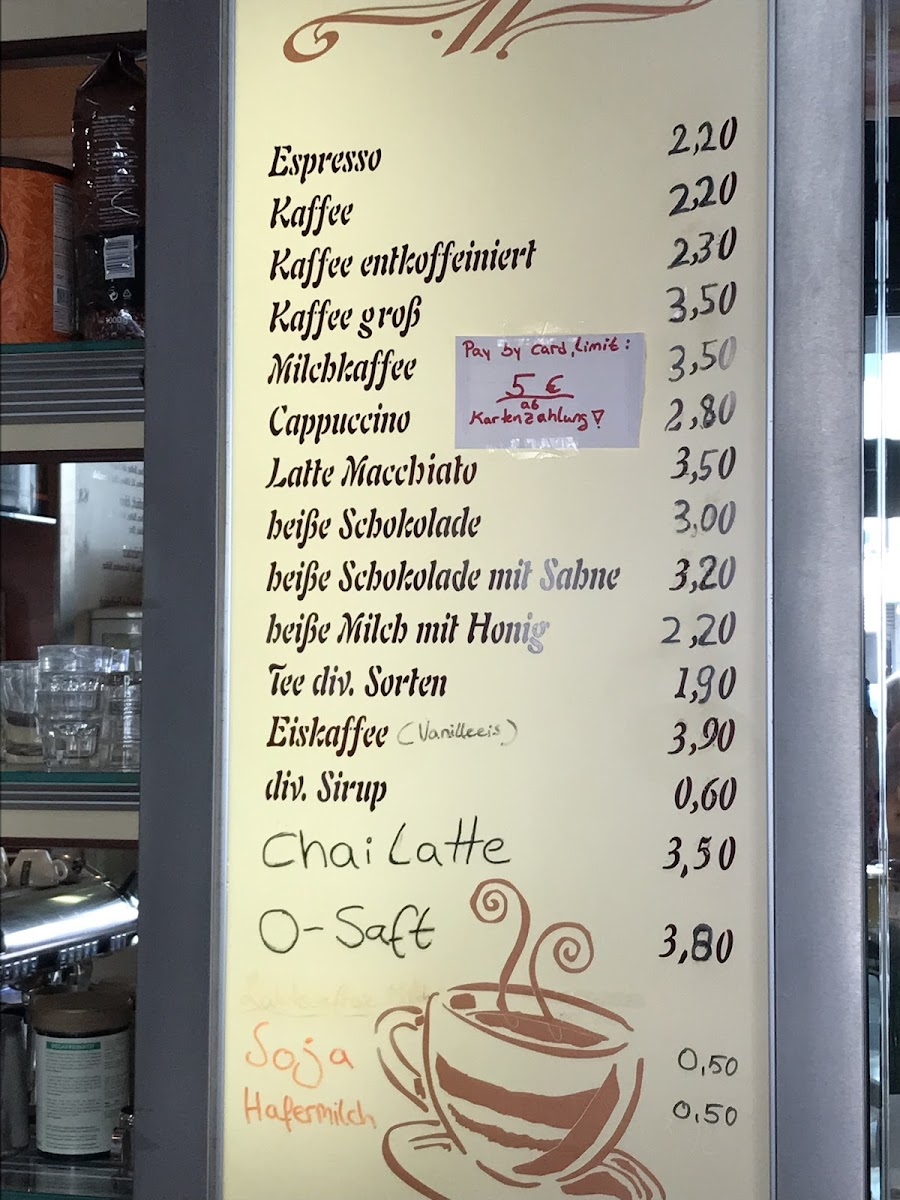 Espresso 2,20
Kaffee 2,20
Kaffee entkoffeiniert 2,30
Kaffee groß 3,50
Milchkaffee 3,50
Pay by card, limit:
5 €
ab
Kartenzahlung!
Cappuccino 2,80
Latte Macchiato 3,50
heiße Schokolade 3,00
heiße Schokolade mit Sahne 3,20
heiße Milch mit Honig 2,20
Tee div. Sorten 1,90
Eiskaffee (Vanilleeis) 3,90
div. Sirup 0,60
Chai Latte 3,50
O-Saft 3,80
Soja 0,50
Hafermilch 0,50